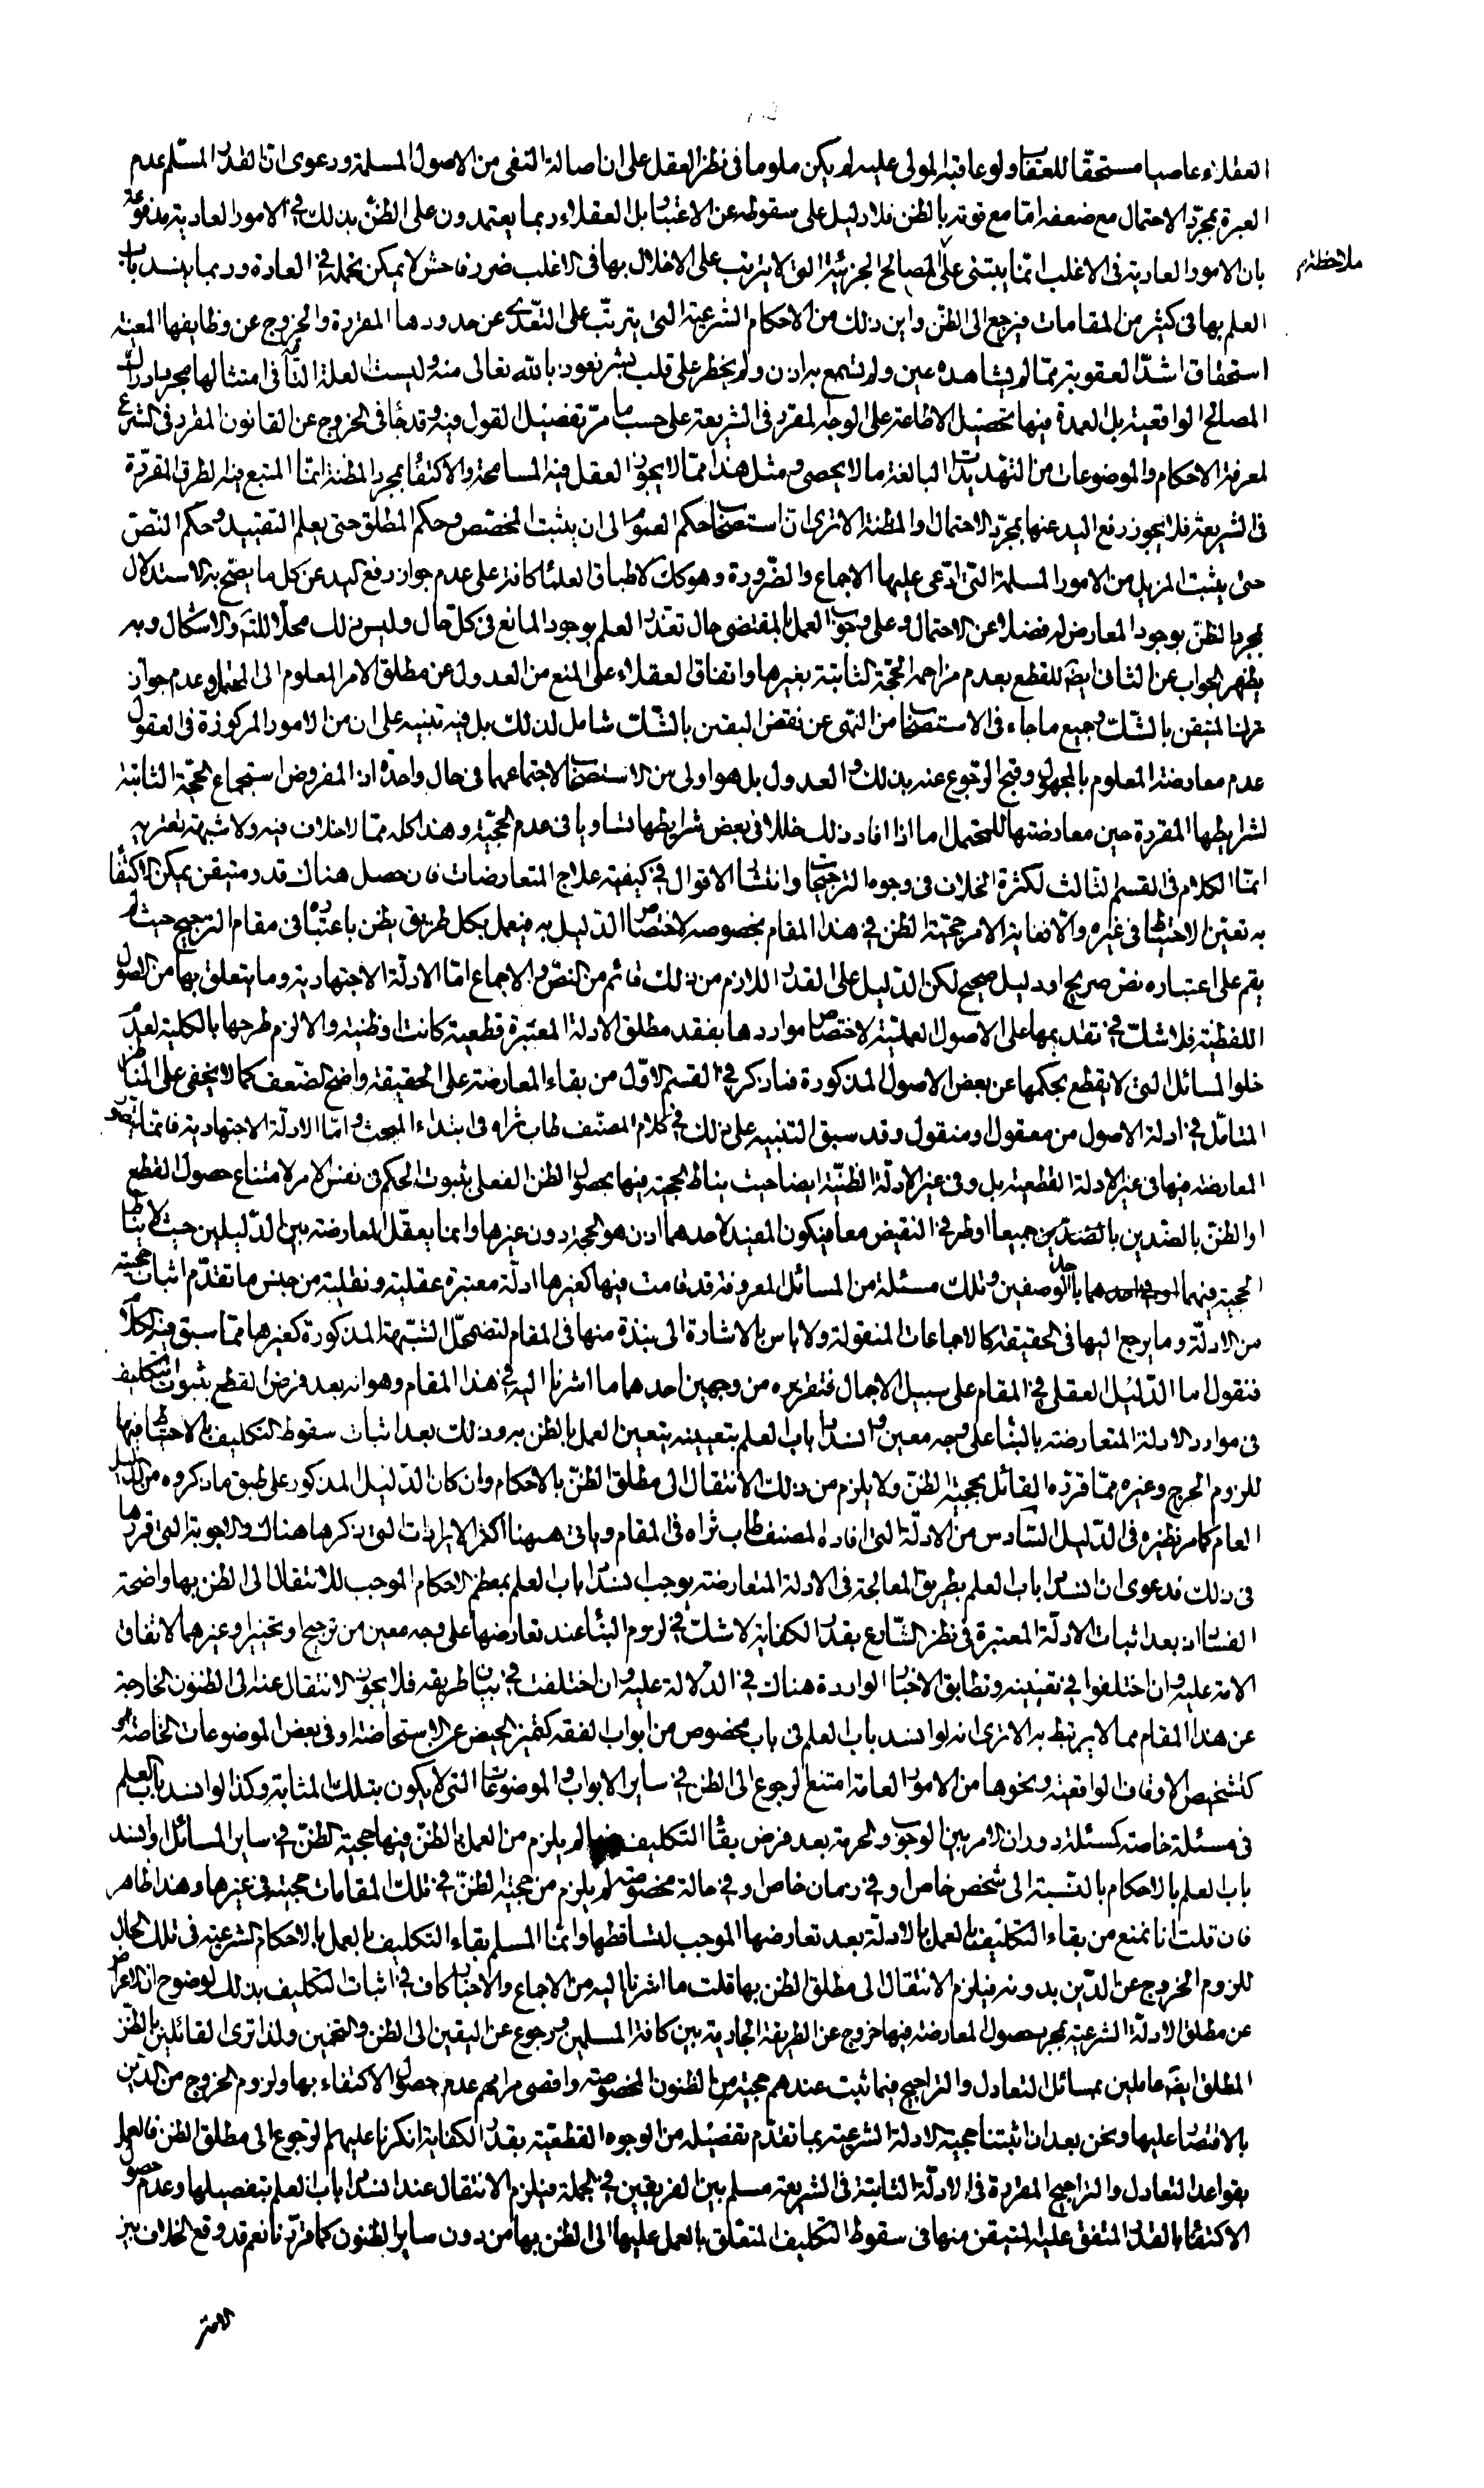 العقلاء عاصيا مستحقّا للعقاب ولو عاقبه المولى عليه لم يكن ملوما فى نظر العقل على ان اصالة النفى من الاصول المسلمة ودعوى ان القدر المسلّم عدم
العبرة بمجرّد الاحتمال مع ضعفه امّا مع قوته بالظن فلا دليل على سقوطه عن الاعتبار بل العقلاء ربما يعتمدون على الظنّ بذلك فى الامور العادية مدفوعة
بان الامور العادية فى الاغلب انّما يبتنى على المصالح الجزئية التى لا يترتب على الاخلال بها فى الاغلب ضرر فاحش لا يمكن تحمله فى العادة وربما ينسد باب
ملاحظة
العلم بها فى كثير من المقامات فيرجع الى الظنّ واين ذلك من الاحكام الشرعية التى يترتّب على التعّدى عن حدودها المقررة والخروج عن وظايفها المعينة
استحقاق اشدّ العقوبة ممّا لم يشاهده عين ولم تسمع به اذن ولم يخطر على قلب بشر نعوذ بالله تعالى منه وليست لعلة التامّة فى امتثالها مجرد ادراك
المصالح الواقعية بل العمدة فيها تحصيل الاطاعة على الوجه المقرر فى الشريعة على حسب ما مرّ تفصيل القول فيه وقد جاء فى الخروج عن القانون المقرر فى الشرع
لمعرفة الاحكام والموضوعات من التهديدات البالغة ما لا يحصى ومثل هذا ممّا لا يجوز العقل فيه المسامحة والاكتفاء بمجرد المظنة انمّا المتبع فيه الطرق المقرّرة
فى الشريعة فلا يجوز رفع اليد عنها بمجرّد الاحتمال والمظنة الا ترى ان استصحاب حكم العموم الى ان يثبت المخصّص وحكم المطلق حتى يعلم التقييد وحكم النصّ
حتى يثبت المزيل من الامور المسلمة التى ادّعى عليها الاجماع والضّرورة وهو كك لاطباق العلماء كافة على عدم جواز رفع اليد عن كل ما يصّح به الاستدلال
بمجرد الظنّ بوجود المعارض له فضلا عن الاحتمال وعلى وجوب العمل بالمقتضى حال تعذر العلم بوجود المانع فى كلّ حال وليس ذلك محلّا للتامّل والاشكال وبه
يظهر الجواب عن الثانى ايضا للقطع بعدم مزاحمة الحجّة الثابتة بغيرها واتفاق العقلاء على المنع من العدول عن مطلق الامر المعلوم الى المحتمل وعدم جواز
ترك المتيقن بالشّك وجميع ما جاء فى الاستصحاب من النهى عن نقض اليقين بالشّك شامل لذلك بل فيه تنبيه على ان من الامور المركوزة فى العقول
عدم معارضة المعلوم بالمجهول وقبح الرجوع عنه بذلك والعدول بل هو اولى من الاستصحاب لاجتماعهما فى حال واحدة اذ المفروض استجماع الحجّة الثابتة
لشرايطها المقررة حين معارضتها للمحتمل اما اذا افاد ذلك خللا فى بعض شرايطها تساويا فى عدم الحجيّة وهذا كله ممّا لا خلاف فيه ولا شبهة تعتريه
انمّا الكلام فى القسم الثالث لكثرة الخلاف فى وجوه الترجيحات وانتشار الاقوال فى كيفية علاج المتعارضات فان حصل هناك قدر متيقن يمكن الاكتفاء
به تعين الاحتياط فى غيره والّا فغاية الامر حجّية الظن فى هذا المقام بخصوصه لاختصاص الدّليل به فيعمل بكل طريق يظن باعتباره فى مقام الترجيح حيث لم
يقم على اعتباره نص صريح او دليل صحيح لكن الدّليل على القدر اللازم من ذلك قائم من النصّ والاجماع امّا الادلّة الاجتهادية وما يتعلق بها من الاصول
اللفظية فلا شك فى تقديمها على الاصول العملية لاختصاص مواردها بفقد مطلق الادلة المعتبرة قطعية كانت او ظنية والا لزم طرحها بالكلية لعدم
خلو المسائل التى لا يقطع بحكمها عن بعض الاصول المذكورة فما ذكر فى القسم الاوّل من بقاء المعارضة على الحقيقة واضح الضّعف كما لا يخفى على الناظر
المتامّل فى ادلة الاصول من معقول ومنقول وقد سبق التنبيه على ذلك فى كلام المصنّف طاب ثراه فى ابتداء المبحث وامّا الادلة الاجتهادية فانّما يتصور
المعارضة فيها فى غير الادلة القطعية بل وفى غير الادلّة الظنيّة ايضا حيث يناط الحجية فيها بحصول الظن الفعلى بثبوت الحكم فى نفس الامر لامتناع حصول القطع
او الظنّ بالضدين جميعا او طرفى النقيض معا فيكون المفيد لاحدهما اذن هو الحجة دون غيرها وانما يعقل المعارضة بين الدّليلين حيث لا يناط
الحجية فيهما باحد الوصفين وتلك مسئلة من المسائل المعروفة قد قامت فيها كغيرها ادلّة معتبرة عقلية ونقلية من جنس ما تقدّم اثبات حجيته
من الادلّة وما يرجع اليها فى الحقيقة كالاجماعات المنقولة ولا باس بالاشارة الى نبذة منها فى المقام لتضمحلّ الشبهة المذكورة كغيرها ممّا سبق فيه الكلام
فنقول اما الدّليل العقلى فى المقام على سبيل الاجمال فتقريره من وجهين احدهما ما اشرنا اليه فى هذا المقام وهو انه بعد فرض القطع بثبوت التكليف
فى موارد الادلة المتعارضة بالبناء على وجه معين وانسداد باب العلم بتعيينه يتعين العمل بالظن به وذلك بعد اثبات سقوط التكليف بالاحتياط فيها
للزوم الحرج وغيره ممّا قرّره القائل بحجية الظنّ ولا يلزم من ذلك الانتقال الى مطلق الظنّ بالاحكام وان كان الدّليل المذكور على طبق ما ذكروه من الدليل
العام كما مر نظيره فى الدّليل السّادس من الادلّة التى افاده المصنف طاب ثراه فى المقام وياتى هيهنا اكثر الايرادات التى ذكرها هناك والاجوبة التى قررها
فى ذلك فدعوى ان انسداد باب العلم بطريق المعالجة فى الادلة المتعارضة يوجب انسداد باب العلم بمعظم الاحكام الموجب للانتقال الى الظن بها واضحة
الفساد اذ بعد اثبات الادلّة المعتبرة فى نظر الشّارع بقدر الكفاية لا شكّ فى لزوم البناء عند تعارضها على وجه معين من ترجيح او تخيير او غيرهما لاتفاق
الامة عليه وان اختلفوا فى تعيينه وتطابق الاخبار الواردة هناك فى الدّلالة عليه وان اختلفت فى بيان طريقه فلا يجوز الانتقال عنه الى الظنون الخارجة
عن هذا المقام مما لا يرتبط به الا ترى انه لو انسد باب العلم فى باب مخصوص من ابواب الفقه كتميز الحيض عن الاستحاضة او فى بعض الموضوعات الخاصّة
كتشخيص الاوقاف الواقعية ونحوها من الامور العامة امتنع الرجوع الى الظن فى ساير الابواب والموضوعات التى لا يكون بتلك المثابة وكذا لو انسد باب العلم
فى مسئلة خاصة كمسئلة دوران الامر بين الوجوب والحرمة بعد فرض بقاء التكليف لم يلزم من العمل بالظنّ فيها حجية الظنّ فى ساير المسائل او انسد
باب العلم بالاحكام بالنّسبة الى شخص خاص او فى زمان خاص او فى حالة مخصوصة لم يلزم من حجية الظنّ فى تلك المقامات حجيته فى غيرها وهذا ظاهر
فان قلت انا نمنع من بقاء التكليف بالعمل بالادلّة بعد تعارضها الموجب لتساقطها وانمّا المسلم بقاء التكليف بالعمل بالاحكام الشرعية فى تلك الحال
للزوم الخروج عن الدّين بدونه فيلزم الانتقال الى مطلق الظن بها قلت ما اشرنا اليه من الاجماع والاخبار كاف فى اثبات التكليف بذلك لوضوح ان الاعراض
عن مطلق الادلّة الشرعية بمجرد حصول المعارضة فيها خروج عن الطريقة الجارية بين كافة المسلمين ورجوع عن اليقين الى الظن والتخمين ولذا ترى القائلين بالظنّ
المطلق ايضا عاملين بمسائل التعادل والتراجيح فيما ثبت عندهم حجيته من الظنون المخصوصة واقصى مرامهم عدم حصول الاكتفاء بها ولزوم الخروج من الدّين
بالاقتصار عليها ونحن بعد ان اثبتنا حجية الادلة الشرعية بما تقدّم تفصيله من الوجوه القطعيّة بقدر الكفاية انكرنا عليهم الرجوع الى مطلق الظن فالعمل
بقواعد التعادل والتراجيح المقررة فى الادلّة الثابتة فى الشريعة مسلم بين الفريقين فى الجملة فيلزم الانتقال عند انسداد باب العلم بتفصيلها وعدم حصول
الاكتفاء بالقدر المتفق عليه المتيقن منها فى سقوط التكليف المتعلق بالعمل عليها الى الظن بها من دون ساير الظنون كما قرّرنا نعم قد وقع الخلاف بين